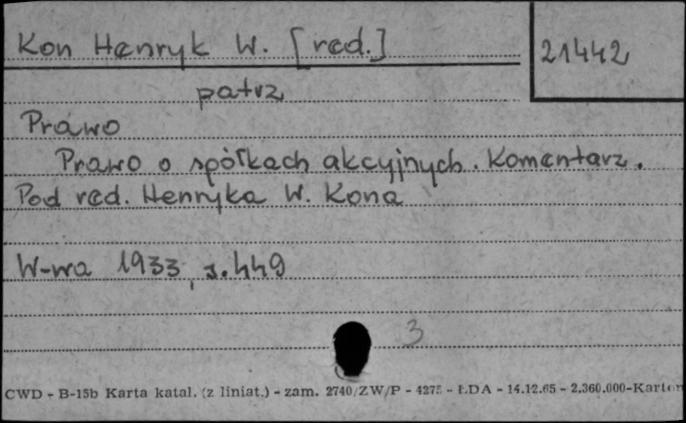 Kon Henryk W. [red.]
21442
patrz
Prawo
Prawo o spółkach akcyjnych. Komentarz.
Pod red. Henryka W. Kona
W-wa 1933, s. 449
3
CWD - B-15b Karta katal. (z liniat.) - zam. 2740/ZW/P - 4275 - ŁDA - 14.12.65 - 2.360.000-Karton